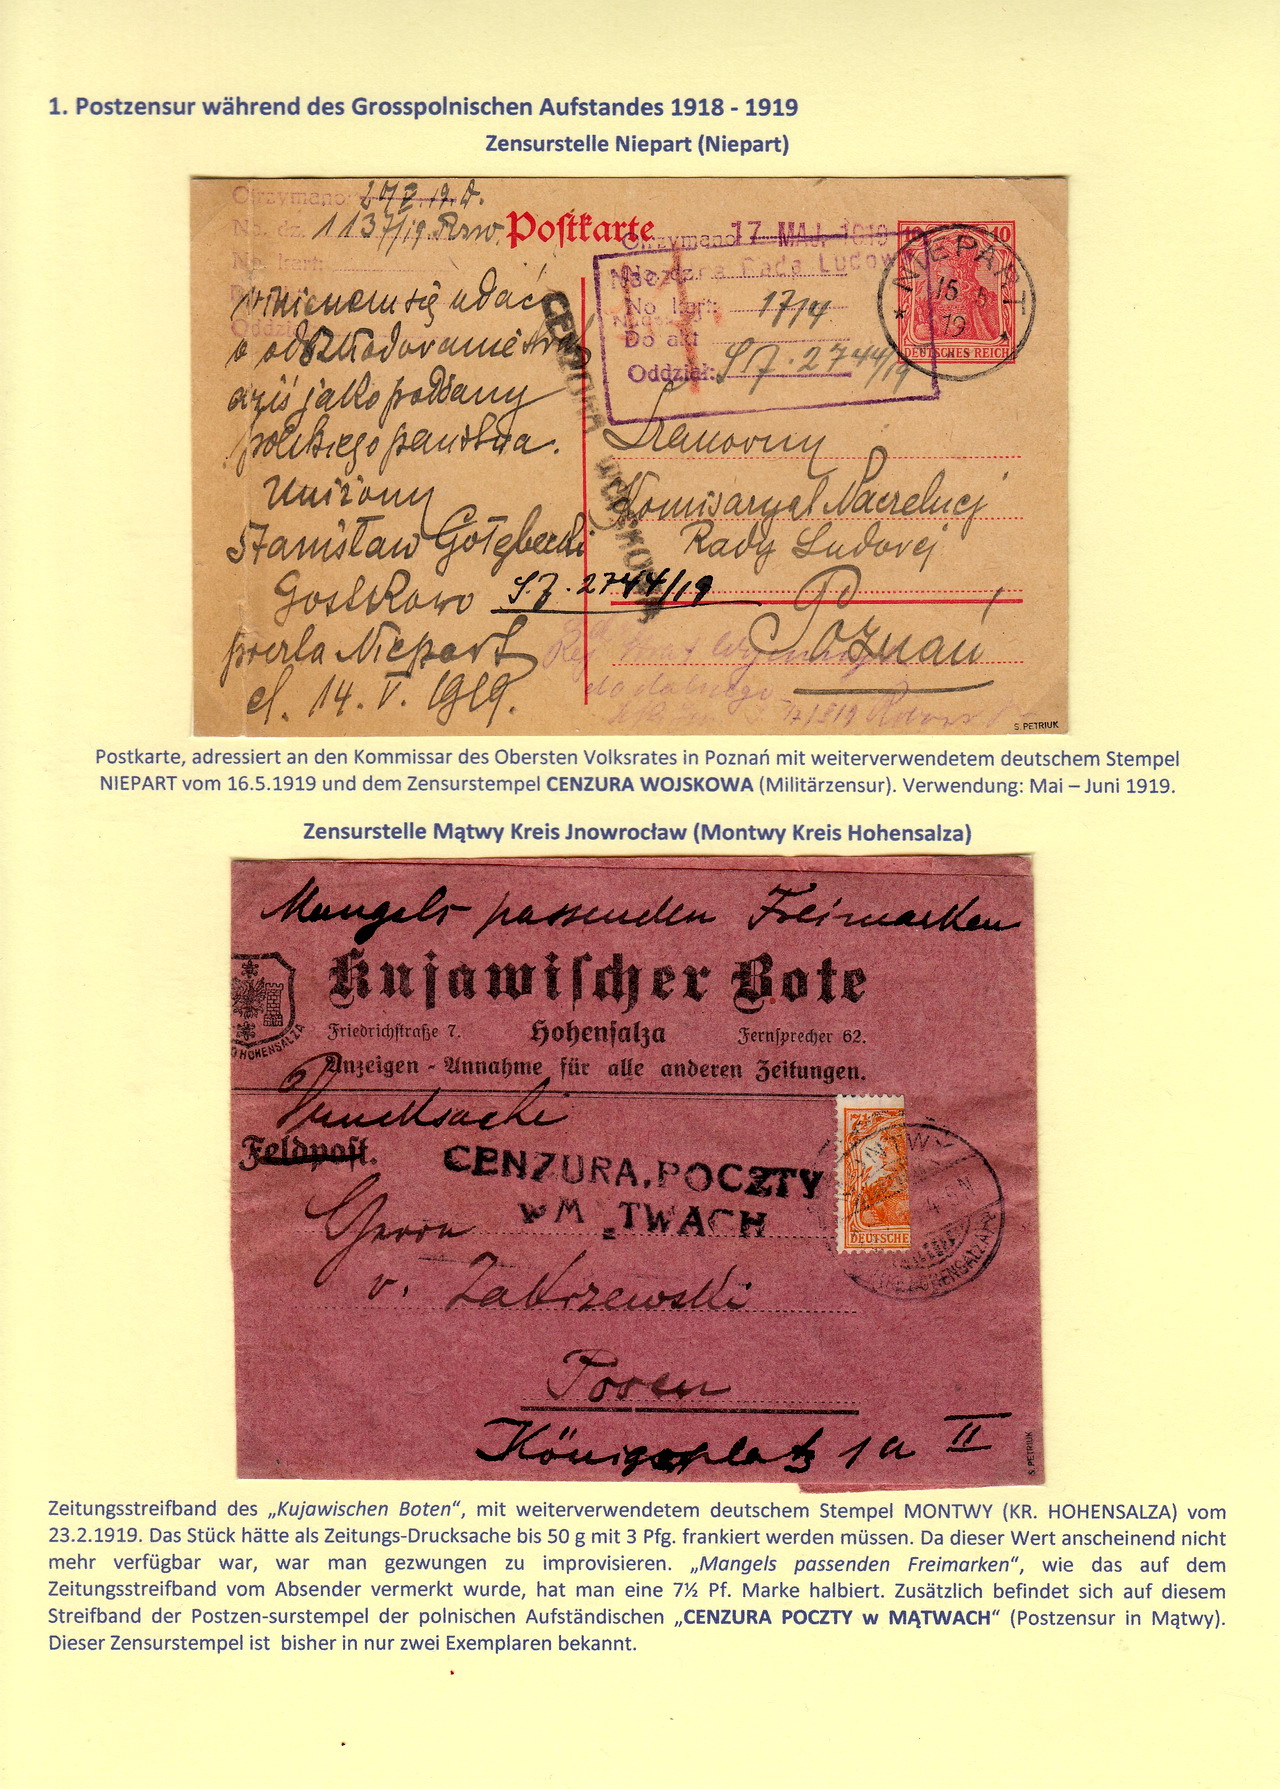 1. Postzensur während des Grosspolnischen Aufstandes 1918 - 1919
Zensurstelle Niepart (Niepart)
Otrzymano:
No. dz. 1137/19
No. kart:
Oddział:
Postkarte
Otrzymano 17 MAJ. 1919
Rada Ludow
No. kart: 1714
Do akt
Oddział: S7. 2744/19
10 10
DEUTSCHES REICH
NIEPART
16 5
19
CENZURA WOJSKOWA
się udać
o odszkodowanie
dziś jako poddany
polskiego państwa.
Uniżony
Stanisław Gołębecki
Gostkowo
poczta Niepart
d. 14. V. 1919.
S7. 2744/19
Szanowny
Komisaryat Naczelnej
Rady Ludowej
Poznań
S. PETRIUK
Postkarte, adressiert an den Kommissar des Obersten Volksrates in Poznań mit weiterverwendetem deutschem Stempel
NIEPART vom 16.5.1919 und dem Zensurstempel CENZURA WOJSKOWA (Militärzensur). Verwendung: Mai – Juni 1919.
Zensurstelle Mątwy Kreis Jnowrocław (Montwy Kreis Hohensalza)
Mangels passenden Freimarken
Kujawischer Bote
Friedrichstraße 7. Hohensalza Fernsprecher 62.
HOHENSALZA
Anzeigen - Annahme für alle anderen Zeitungen.
Drucksache
Feldpost.
CENZURA.POCZTY
w M TWACH
7½
DEUTSCHE
MONTWY
HOHENSALZA
Herrn
v. Zakrzewski
Posen
Königsplatz 1a II
S. PETRIUK
Zeitungsstreifband des „Kujawischen Boten“, mit weiterverwendetem deutschem Stempel MONTWY (KR. HOHENSALZA) vom
23.2.1919. Das Stück hätte als Zeitungs-Drucksache bis 50 g mit 3 Pfg. frankiert werden müssen. Da dieser Wert anscheinend nicht
mehr verfügbar war, war man gezwungen zu improvisieren. „Mangels passenden Freimarken“, wie das auf dem
Zeitungsstreifband vom Absender vermerkt wurde, hat man eine 7½ Pf. Marke halbiert. Zusätzlich befindet sich auf diesem
Streifband der Postzen-surstempel der polnischen Aufständischen „CENZURA POCZTY w MĄTWACH“ (Postzensur in Mątwy).
Dieser Zensurstempel ist bisher in nur zwei Exemplaren bekannt.